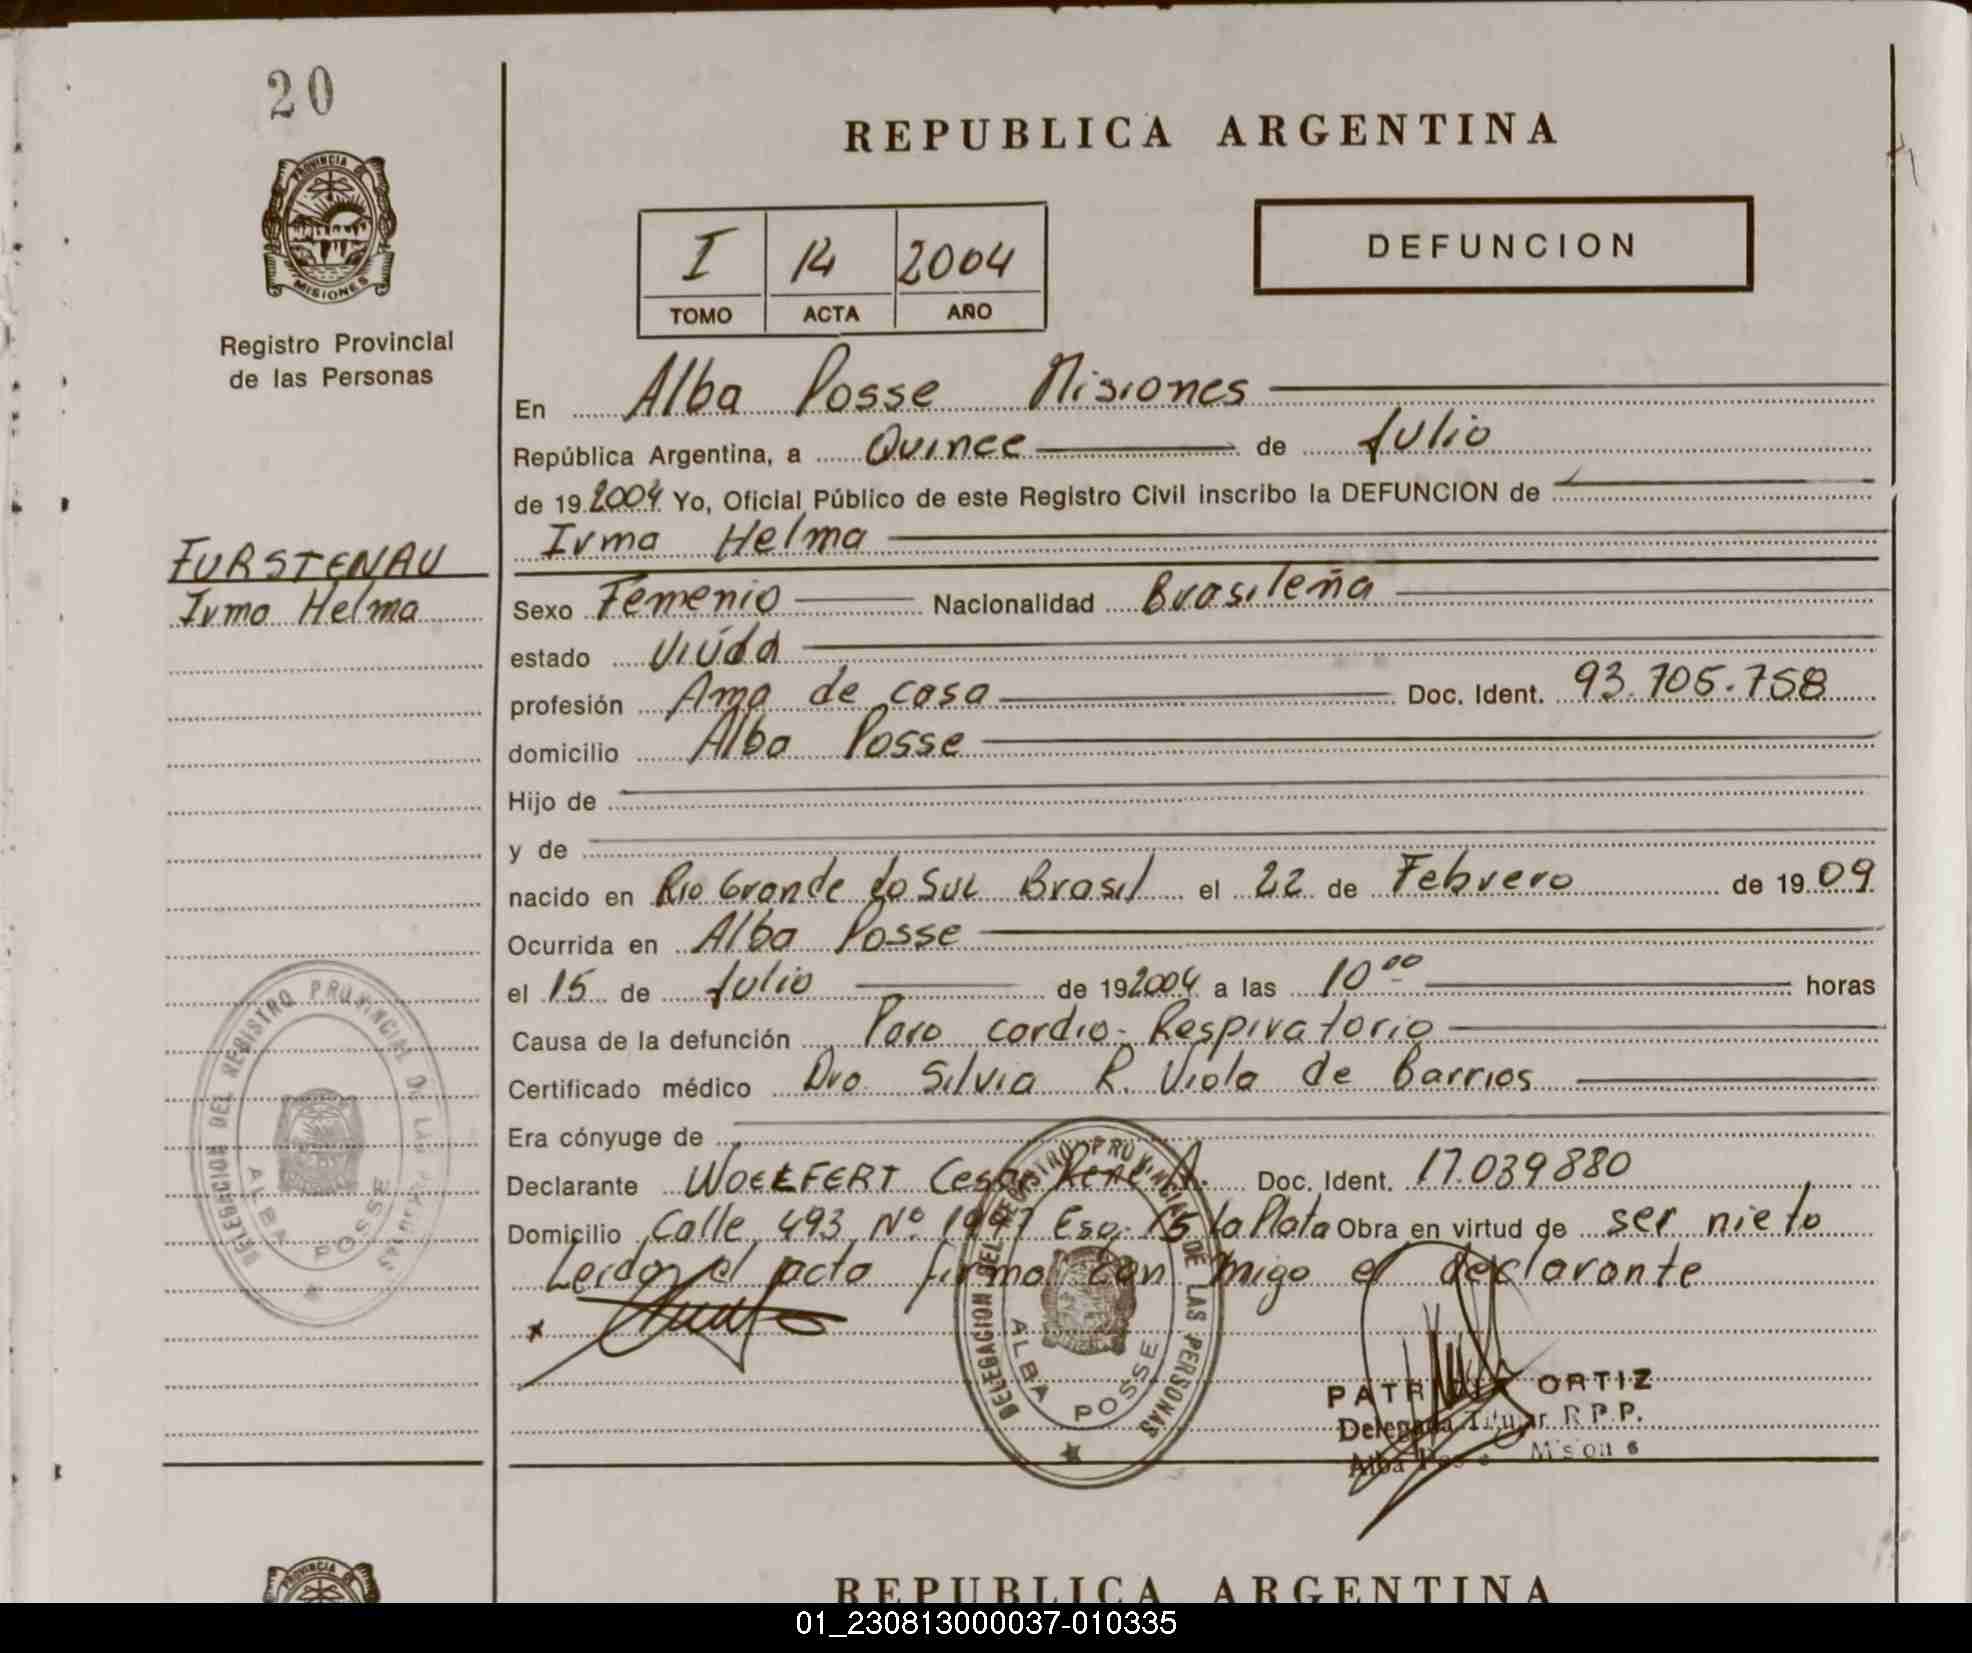 20
REPUBLICA ARGENTINA
PROVINCIA DE
MISIONES
Registro Provincial
de las Personas
I 14 2004
TOMO ACTA AÑO
DEFUNCION
En Alba Posse Misiones
República Argentina, a Quince de Julio
de 19 2004 Yo, Oficial Público de este Registro Civil inscribo la DEFUNCION de
FURSTENAU
Irma Helma
Irma Helma
Sexo Femenio Nacionalidad Brasileña
estado Viúda
profesión Ama de casa Doc. Ident. 93.705.758
domicilio Alba Posse
Hijo de
y de
nacido en Rio Grande do Sul Brasil el 22 de Febrero de 19 09
Ocurrida en Alba Posse
el 15 de Julio de 19 2004 a las 10 00 horas
Causa de la defunción Paro cardio-Respiratorio
Certificado médico Dra. Silvia R. Viola de Barrios
Era cónyuge de
Declarante WOELFERT Cesar Rene A. Doc. Ident. 17.039880
Domicilio Calle 493 Nº 1997 Esq. 15 La Plata Obra en virtud de ser nieto
Leida el acta firma con migo el declarante
DELEGACION DEL REGISTRO PROVINCIAL DE LAS PERSONAS
ALBA POSSE
DELEGACION DEL REGISTRO PROVINCIAL DE LAS PERSONAS
ALBA POSSE
PATRICIA ORTIZ
Delegada Titular R.P.P.
Alba Posse Misiones
PROVINCIA
REPUBLICA ARGENTINA
01_230813000037-010335